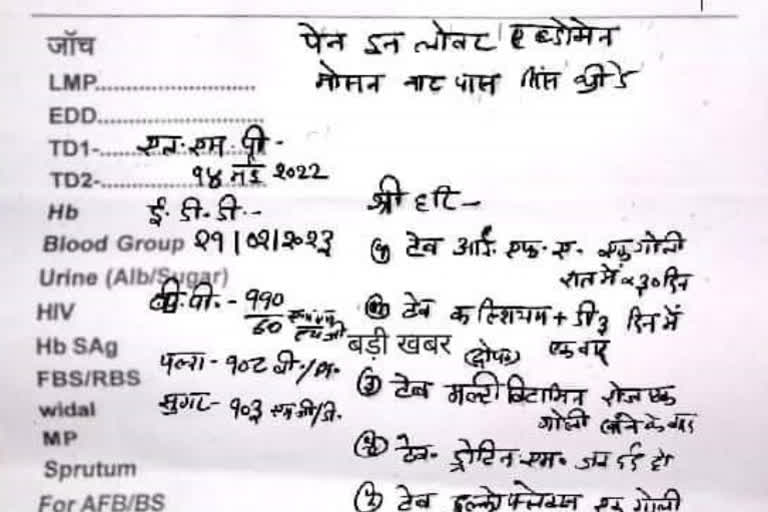 जाँच
पेन इन लोवर एब्डोमेन
LMP..........................
मोसन नाट पास
EDD..........................
TD1-..........................
एल. एम. पी -
TD2-..........................
१४ मई २०२२
Hb
ई. डी. डी. -
श्री हरि -
Blood Group
२१/०२/२०२३
① टेब आई. एफ. ए. एक गोली
Urine (Alb/Sugar)
रात में x ३० दिन
HIV
बी. पी. - ११०/६० एमएम एचजी
② टेब कैल्शियम + डी३ दिन में
Hb SAg
बड़ी खबर
एक बार
FBS/RBS
पल्स - १०८ बी./
③ टेब मल्टी विटामिन रोज एक
widal
सुगर - १०३ एमजी/डी.
गोली खाने के बाद
MP
④ टेब. ड्रोटिन एम. जब दर्द हो
Sprutum
For AFB/BS
⑤ टेब एक गोली